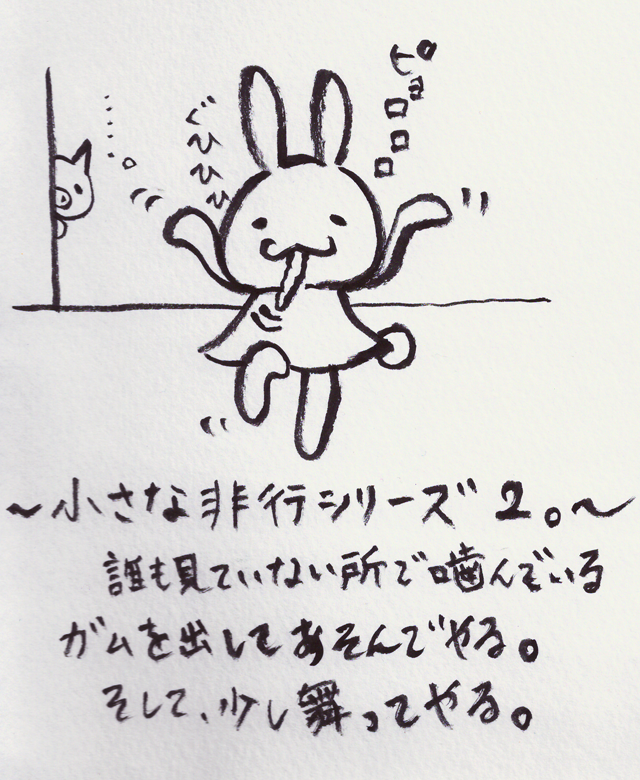 ピョロロロ
ぐひひひ
・・・・・。
～小さな非行シリーズ2。～
誰も見ていない所で噛んでいる
ガムを出してあそんでやる。
そして、少し舞ってやる。